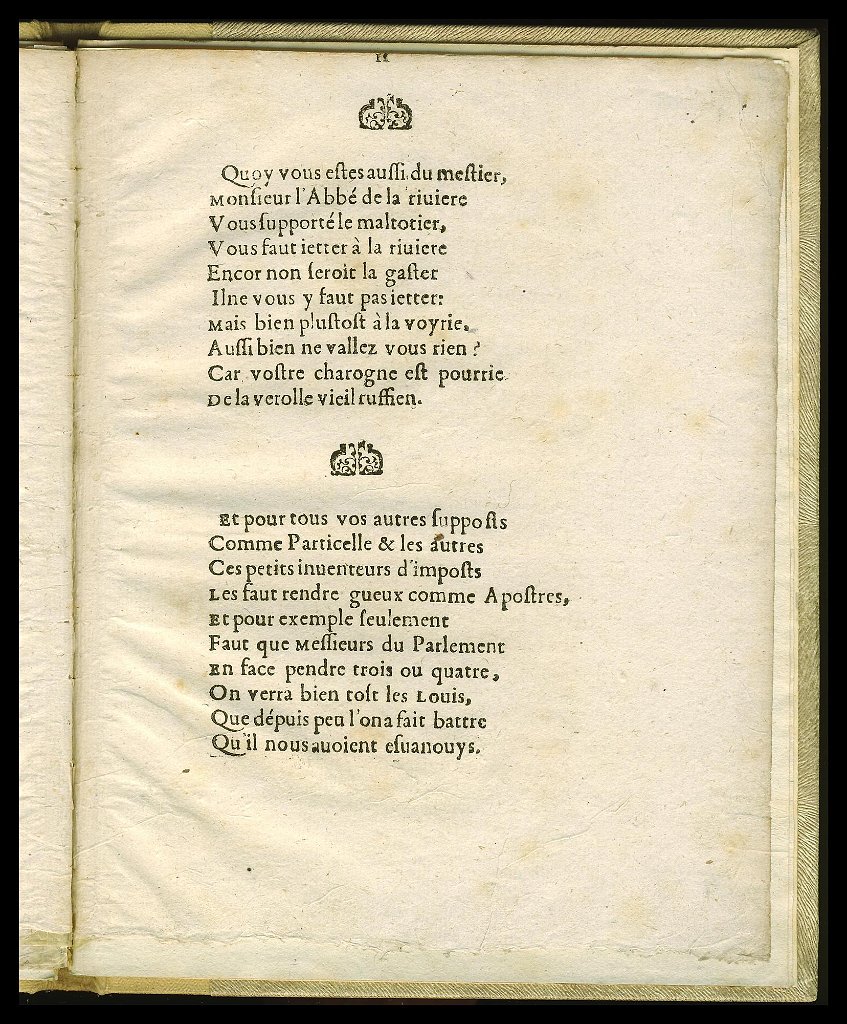 11
Quoy vous eſtes auſſi du meſtier,
Monſieur l'Abbé de la riuiere
Vous ſupporté le maltotier,
Vous faut ietter à la riuiere
Encor non ſeroit la gaſter
Il ne vous y faut pas ietter:
Mais bien pluſtoſt à la voyrie,
Auſſi bien ne vallez vous rien ?
Car voſtre charogne eſt pourrie
De la verolle vieil ruffien.
Et pour tous vos autres ſuppoſts
Comme Particelle & les autres
Ces petits inuenteurs d'impoſts
Les faut rendre gueux comme Apoſtres,
Et pour exemple ſeulement
Faut que Meſſieurs du Parlement
En face pendre trois ou quatre,
On verra bien toſt les Louis,
Que dépuis peu l'on a fait battre
Qu'il nous auoient eſuanouys.